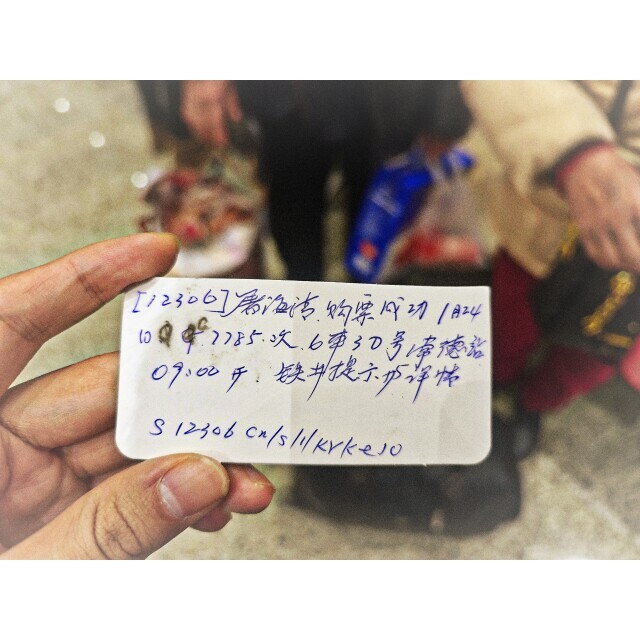 [12306]屠海清.购票成功 1月24
日 C 7785.次.6车3D号常德站
09:00开.铁井提示步详情
S 12306 cn/s/1/krkeJo